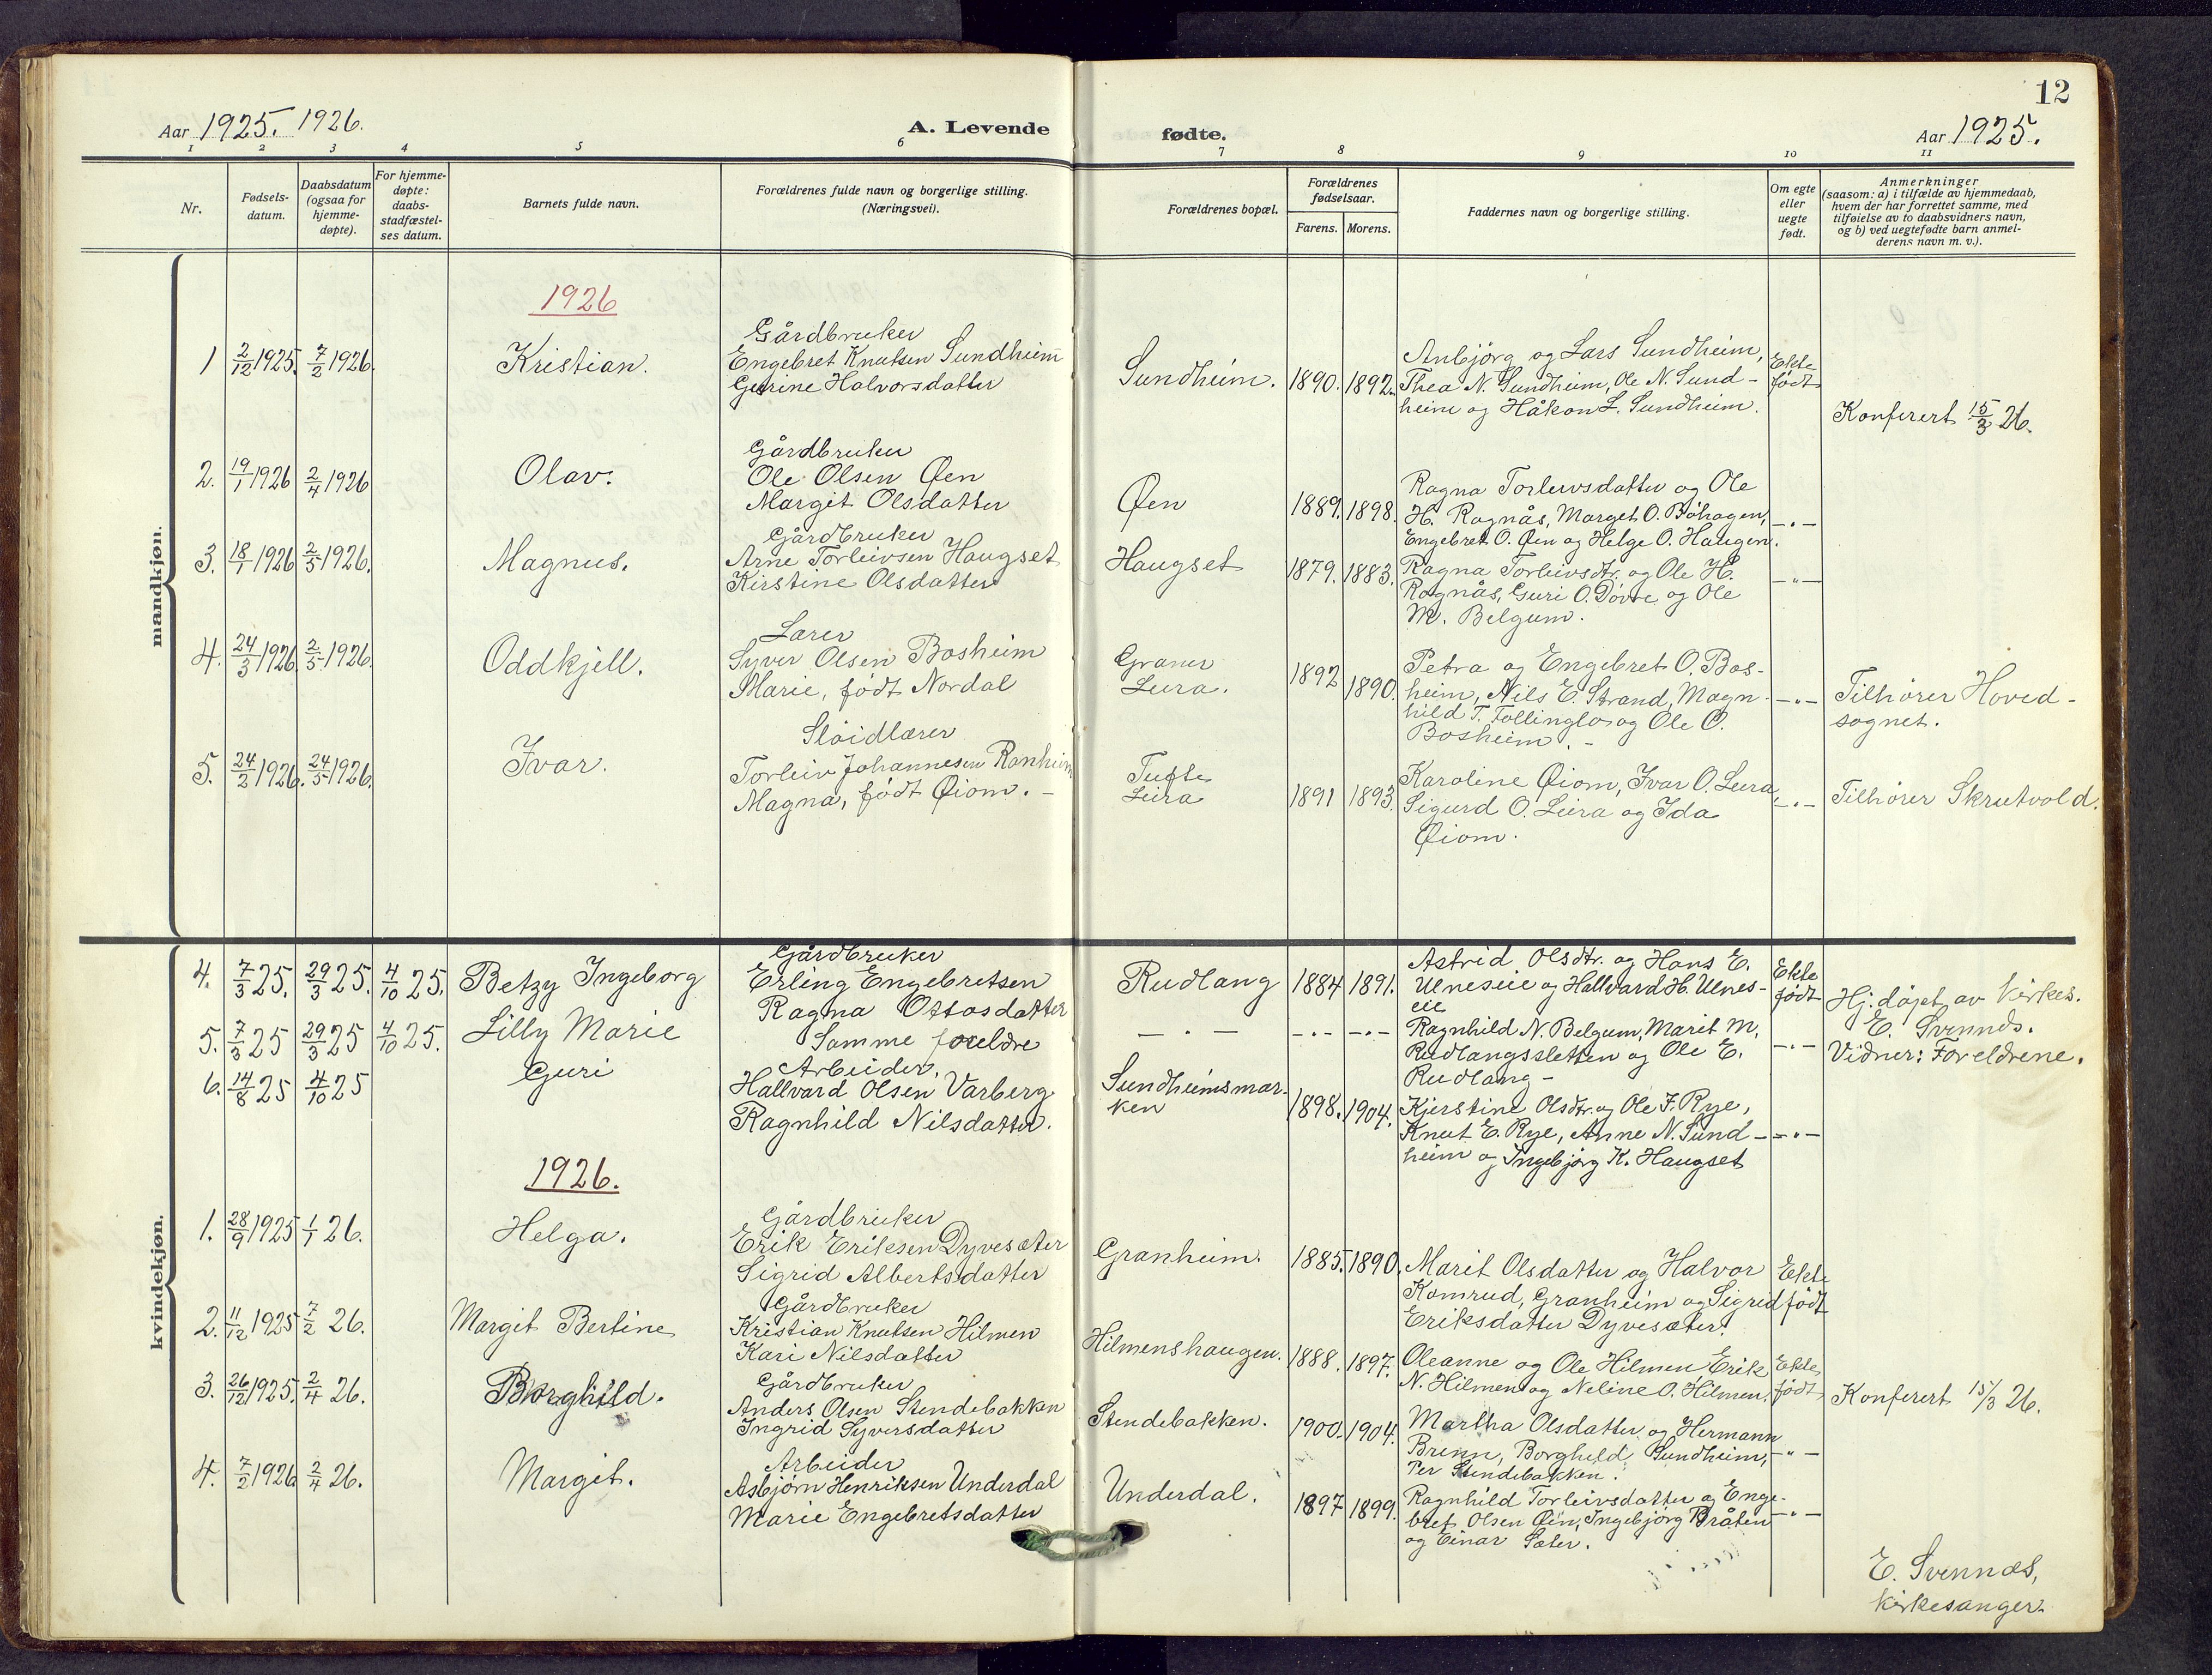 12
Aar 1925. 1926.
A. Levende fødte.
Aar 1925.
1 2 3 4 5 6 7 8 9 10 11
Nr.
Fødsels-
datum.
Daabsdatum
(ogsaa for
hjemme-
døpte).
For hjemme-
døpte:
daabs-
stadfæstel-
ses datum.
Barnets fulde navn.
Forældrenes fulde navn og borgerlige stilling.
(Næringsvei).
Forældrenes bopæl.
Forældrenes
fødselsaar.
Farens. Morens.
Faddernes navn og borgerlige stilling.
Om egte
eller
uegte
født.
Anmerkninger
(saasom: a) i tilfælde av hjemmedaab,
hvem der har forrettet samme, med
tilføielse av to daabsvidners navn,
og b) ved uegtefødte barn anmel-
derens navn m. v.).
mandkjøn.
1926
1 2/12 1925. 7/2 1926.
Kristian.
Gårdbruker
Engebret Knutsen Sundheim
Gurine Halvorsdatter
Sundheim. 1890. 1892.
Anbjörg og Lars Sundheim,
Thea N. Sundheim, Ole N. Sund-
heim og Håkon L. Sundheim.
Ekte
født
Konferert 15/3 26.
2. 19/1 1926 2/4 1926
Olav.
Gårdbruker
Ole Olsen Øen
Margit Olsdatter
Øen 1889. 1898.
Ragna Torleivsdatter og Ole
H. Ragnås, Marget O. Böhagen,
Engebret O. Øen og Helge O. Haugen.
-"-
3. 18/1 1926 2/5 1926.
Magnus.
Gårdbruker
Arne Torleivsen Haugset
Kirstine Olsdatter
Haugset 1879. 1883.
Ragna Torleivsdtr. og Ole H.
Ragnås, Guri O. Dövre og Ole
M. Belgum.
-"-
4. 24/3 1926. 2/5 1926.
Oddkjell.
Lærer
Syver Olsen Bosheim
Marie, født Nordal
Graner
Leira. 1892 1890.
Petra og Engebret O. Bos-
heim, Nils E. Strand, Magn-
hild T. Follinglo og Ole O.
Bosheim. -
-"-
Tilhører Hoved-
sognet.
5. 24/2 1926. 24/5 1926.
Ivar.
Slöidlærer
Torleiv Johannesen Ranheim
Magna, født Øiom. -
Tufte
Leira 1891 1893.
Karoline Øiom, Ivar O. Leira,
Sigurd O. Leira og Ida
Øiom.
-"-
Tilhører Skrutvold.
kvindekjøn.
4. 7/3 25. 29/3 25. 4/10 25.
Betzy Ingeborg
Gårdbruker
Erling Engebretsen
Ragna Ottosdatter
Rudlang 1884 1891.
Astrid Olsdtr. og Hans E.
Ulneseie og Hallvard H. Ulnes-
eie
Ekte
født
Hj. döpt av kirkes.
E. Svennæs.
Vidner: Foreldrene.
5. 7/3 25 29/3 25 4/10 25.
Lilly Marie
Samme foreldre
-"- -"- -"-
Ragnhild N. Belgum, Marit M.
Rudlangssletten og Ole E.
Rudlang -
-"-
6. 14/8 25 4/10 25
Guri
Arbeider,
Hallvard Olsen Varberg
Ragnhild Nilsdatter.
Sundheimsmar-
ken 1898. 1904.
Kjerstine Olsdtr. og Ole F. Rye,
Knut E. Rye, Anne N. Sund-
heim og Ingebjörg K. Haugset
-"-
1926.
1. 28/9 1925 1/1 26.
Helga.
Gårdbruker
Erik Eriksen Dyvesæter
Sigrid Albertsdatter
Granheim. 1885. 1890.
Marit Olsdatter og Halvor
Komrud, Granheim og Sigrid
Eriksdatter Dyvesæter.
Ekte
født
2. 11/12 1925 7/2 26.
Margit Bertine
Gårdbruker
Kristian Knutsen Hilmen
Kari Nilsdatter
Hilmenshaugen. 1888. 1897.
Oleanne og Ole Hilmen, Erik
N. Hilmen og Neline O. Hilmen
Ekte
født
Konferert 15/3 26.
3. 26/12 1925. 2/4 26.
Borghild.
Gårdbruker
Anders Olsen Stendebakken
Ingrid Syversdatter
Stendebakken. 1900. 1904.
Martha Olsdatter og Hermann
Brenn, Borghild Sundheim,
Per Stendebakken.
-"-
4. 7/2 1926 2/4 26.
Margit.
Arbeider
Asbjørn Henriksen Underdal
Marie Engebretsdatter
Underdal. 1897 1899.
Ragnhild Torleivsdatter og Enge-
bret Olsen Øen, Ingebjörg Bråten
og Einar Sæter.
-"-
E. Svennæs,
kirkesanger.